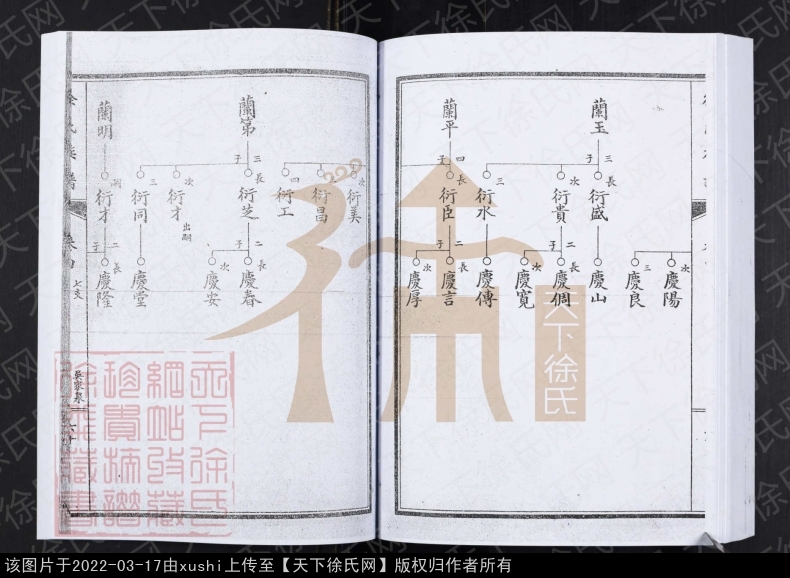 蘭玉
子三
長 衍盛
慶山
次 衍貴
子二
長 慶倜
次 慶寬
三 衍水
慶傳
次 慶陽
三 慶良
蘭平
子四
長 衍臣
子二
長 慶言
次 慶厚
次 衍美
三 衍昌
四 衍工
蘭第
子三
長 衍芝
子二
長 慶春
次 慶安
次 衍才 出嗣
三 衍同
慶堂
蘭明
嗣 衍才
子二
長 慶隆
徐氏族譜
卷四
七支
吳家泉
天下徐氏
天下徐氏网
该图片于2022-03-17由xushi上传至【天下徐氏网】版权归作者所有